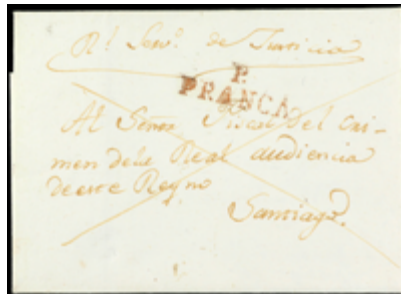 Rl. Servo. de Justicia
P.
FRANCA
Al Señor Fiscal del Cri-
men dela Real audiencia
de este Reyno
Santiago.